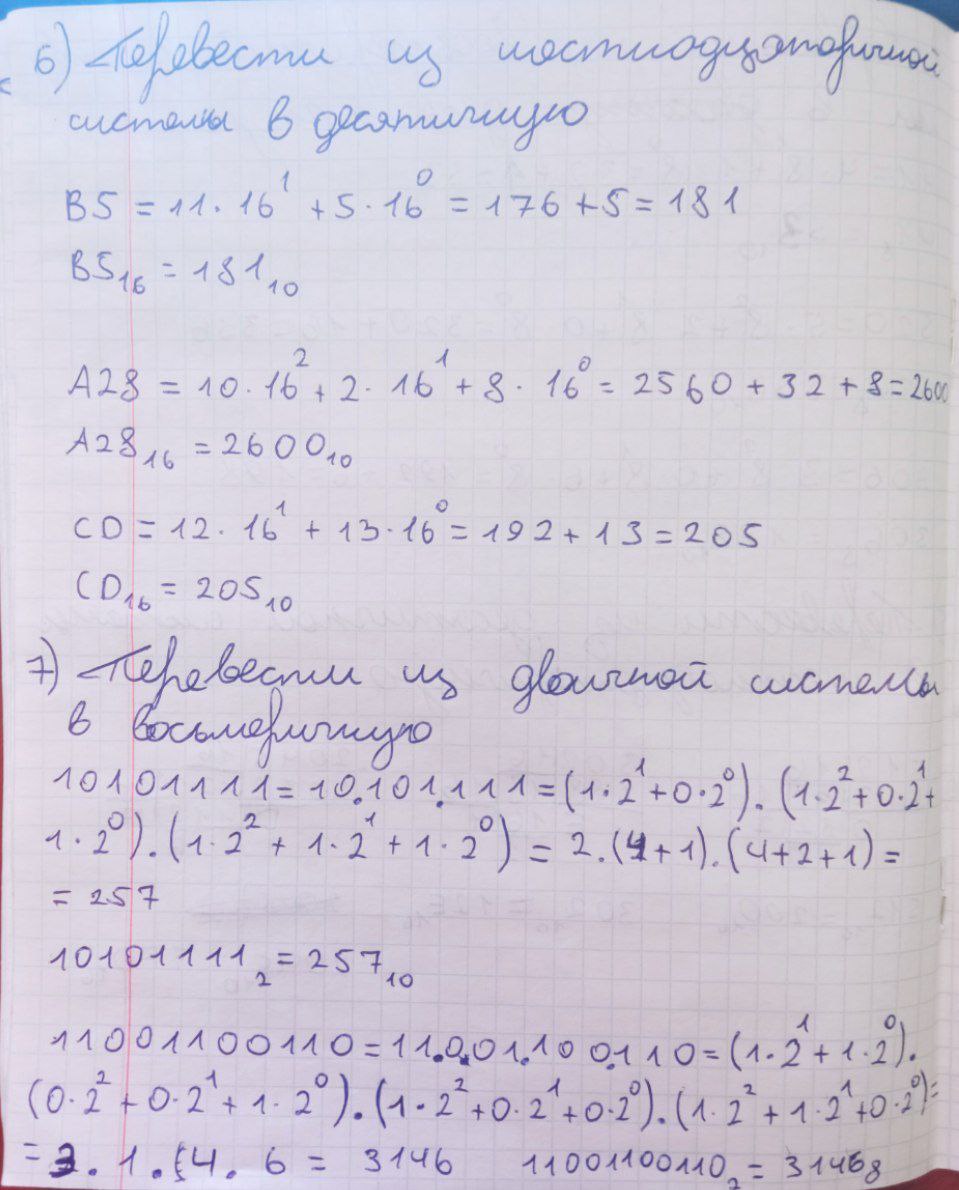 6) Перевести из шестнадцатеричной
системы в десятичную
B5 = 11 · 16¹ + 5 · 16⁰ = 176 + 5 = 181
B5₁₆ = 181₁₀
A28 = 10 · 16² + 2 · 16¹ + 8 · 16⁰ = 2560 + 32 + 8 = 2600
A28₁₆ = 2600₁₀
CD = 12 · 16¹ + 13 · 16⁰ = 192 + 13 = 205
CD₁₆ = 205₁₀
7) Перевести из двоичной системы
в восьмеричную
10101111 = 10.101.111 = (1 · 2¹ + 0 · 2⁰) . (1 · 2² + 0 · 2¹ +
1 · 2⁰) . (1 · 2² + 1 · 2¹ + 1 · 2⁰) = 2 . (4 + 1) . (4 + 2 + 1) =
= 257
10101111₂ = 257₁₀
11001100110 = 11.001.100.110 = (1 · 2¹ + 1 · 2⁰) .
(0 · 2² + 0 · 2¹ + 1 · 2⁰) . (1 · 2² + 0 · 2¹ + 0 · 2⁰) . (1 · 2² + 1 · 2¹ + 0 · 2⁰) =
= 3 . 1 . 4 . 6 = 3146 11001100110₂ = 3146₈